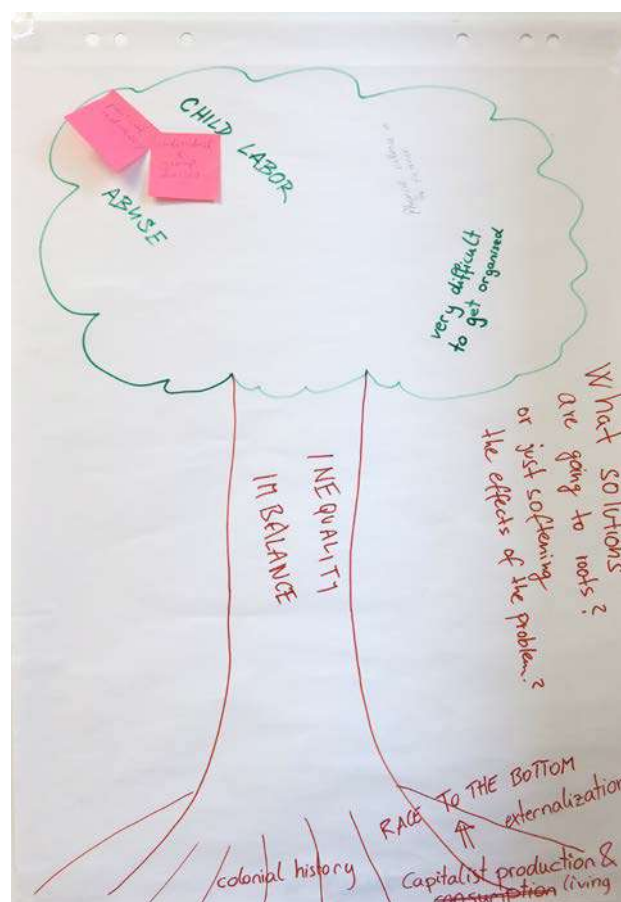 CHILD LABOR
ABUSE
very difficult
to get organised
What solutions
are going to roots?
or just softening
the effects of the problem?
INEQUALITY
IMBALANCE
RACE TO THE BOTTOM
externalization
colonial history
Capitalist production &
consumption (living